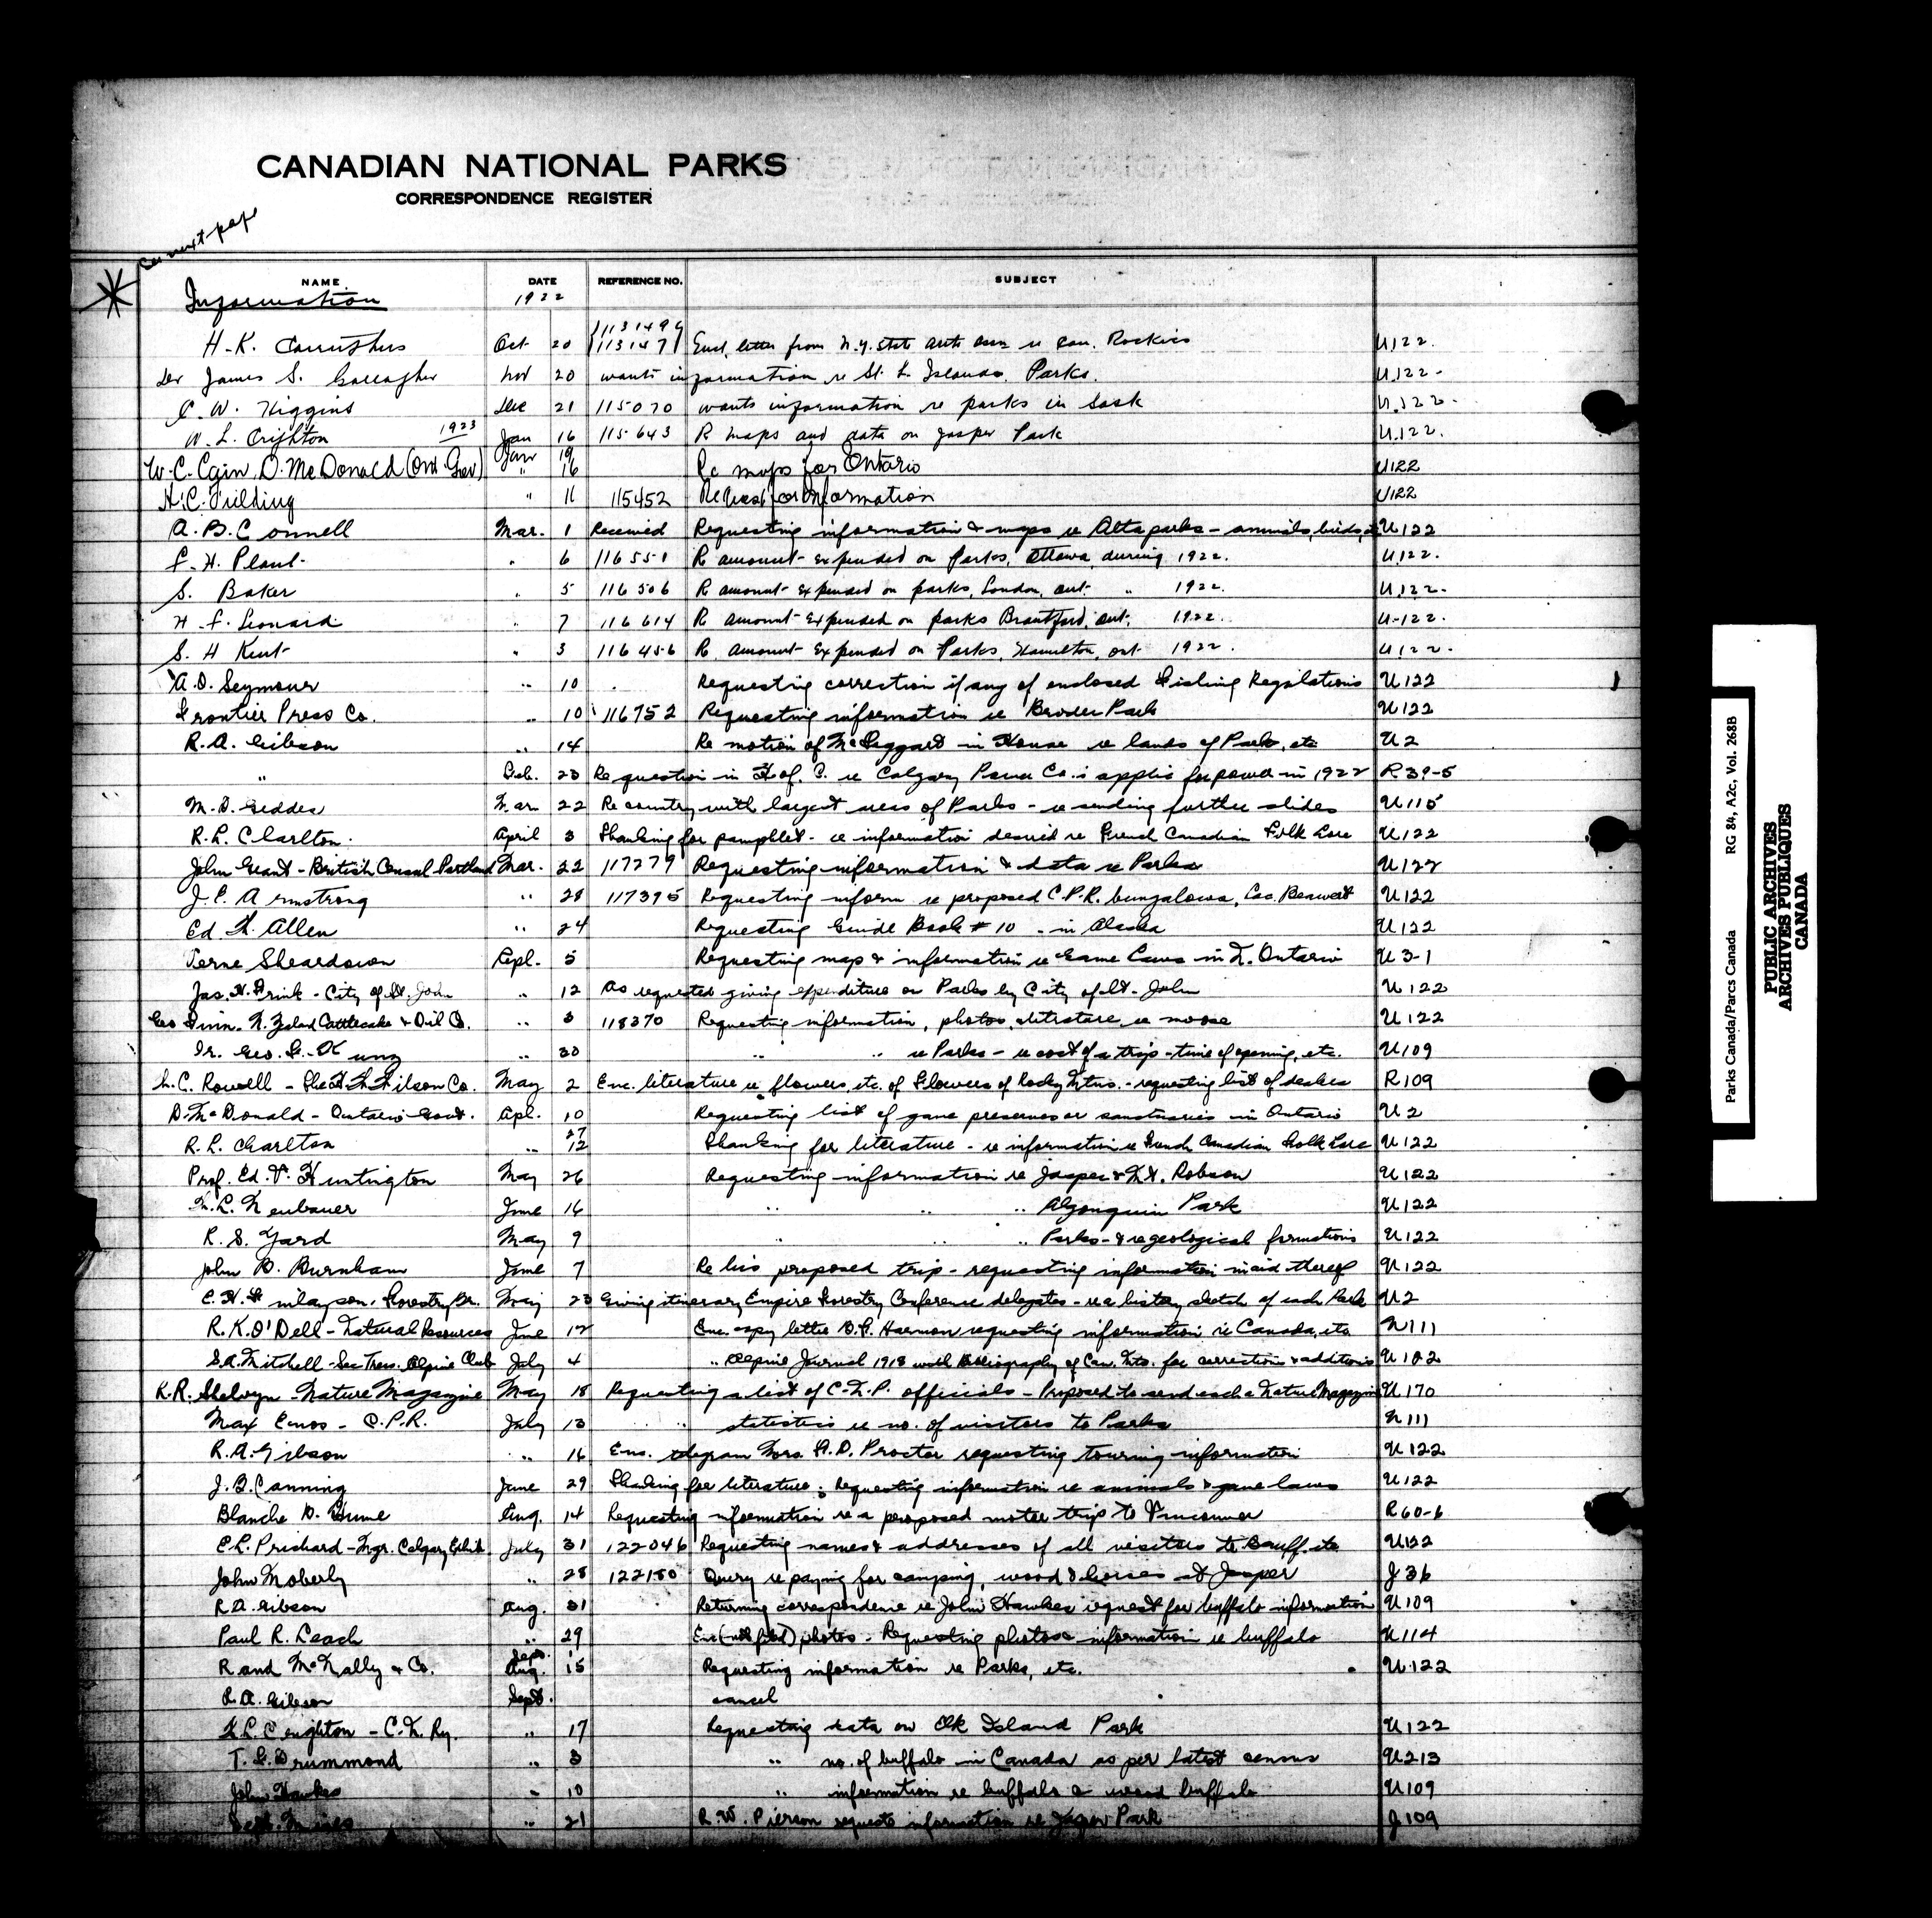 CANADIAN NATIONAL PARKS
CORRESPONDENCE REGISTER
See next page
NAME DATE REFERENCE NO. SUBJECT
Information 1922
1131496
H.K. Carruthers Oct 20 113147 Encl. letter from N.Y. State auto assn re Can. Rockies U122.
James S. Gallagher Nov 20 wants information re St. L. Islands Parks. U.122-
C.W. Higgins Dec 21 115070 wants information re parks in Sask U.122-
W.L. Crighton 1923 Jan 16 115643 R maps and data on Jasper Park U.122.
W.C. Cain, D. McDonald (Ont. Gov) Jan 19 " 16 Re maps for Ontario U122
H.C. Fielding " 11 115452 Request for information U122
A.B. Connell Mar. 1 Received Requesting information & maps re Alta parks - animals, birds, U122
F.H. Plant " 6 116551 R amount expended on Parks, Ottawa, during 1922. U.122.
S. Baker " 5 116506 R amount expended on parks, London, Ont. " 1922. U.122-
H.F. Leonard " 7 116614 R amount expended on parks Brantford, Ont. 1922. U-122.
S.H Kent " 3 116456 R. amount expended on Parks, Hamilton, Ont 1922. U122-
A.D. Seymour " 10 Requesting correction if any of enclosed Fishing Regulations U122
Frontier Press Co. " 10 116752 Requesting information re Border Park U122
R.A. Gibson " 14 Re motion of McTaggart in House re lands of Parks, etc U2
" Feb. 23 Re question in H. of C. re Calgary Power Co.'s applic for power in 1922 R39-5
M.D. Geddes Mar 22 Re country with largest areas of Parks - re sending further slides U115
R.L. Charlton. April 3 Thanking for pamphlet - re information desired re French Canadian Folk Lore U122
John Grant - British Consul Portland Mar. 22 117279 Requesting information & data re Parks U122
J.E. Armstrong " 28 117395 Requesting inform re proposed C.P.R. bungalows, U122
Ed. H. Allen " 24 Requesting Guide Book # 10 - in Alaska U122
Verne Sheardown Apl. 5 Requesting map & information re Game Laws in N. Ontario U3-1
Jas. H. Frink - City of St. John " 12 As requested giving expenditure on Parks by City of St. John U122
Geo Irwin - N. Zealand Cattlecake & Oil Co. " 3 118370 Requesting information, photos, literature re moose U122
Dr. Geo. F. Kunz " 30 " " re Parks - re cost of a trip - time of opening, etc. U109
L.C. Rowell - Co. May 2 Enc. literature re flowers, etc. of Flowers of Rocky Mtns. - requesting list of dealers R109
D. McDonald - Ontario Govt. Apl. 10 Requesting list of game preserves or sanctuaries in Ontario U2
R.L. Charlton " 27 12 Thanking for literature - re information re French Canadian Folk Lore U122
Prof. Ed. V. Huntington May 26 Requesting information re Jasper & Mt. Robson U122
Neubauer June 16 " " " Algonquin Park U122
R.S. Yard May 9 " " " Parks - & re geological formations U122
John B. Burnham June 7 Re his proposed trip - requesting information in aid thereof U122
E.H. Finlayson, Forestry Br. May 23 Giving itinerary Empire Forestry Conference delegates - re a history sketch of each Park U2
R.K. O'Dell - Natural Resources June 12 Enc. copy letter D.P. Harmon requesting information re Canada, etc. N111
S.A. Mitchell - Sec Treas. Alpine Club July 4 " Alpine Journal 1918 with Bibliography of Can. Mts. for correction & additions U102
K.R. Shelvyn - Nature Magazine May 18 Requesting a list of C.N.P. officials - Proposed to send each a Nature Magazine U170
Max Enos - C.P.R. July 13 " statistics re no. of visitors to Parks N111
R.A. Gibson " 16 Enc. telegram Mrs. A.D. Proctor requesting touring information U122
J.B. Canning June 29 Thanking for literature; Requesting information re animals & game laws U122
Blanche D. Hume Aug. 14 Requesting information re a proposed motor trip to Vancouver R60-6
E.L. Prichard - Mgr. Calgary Exhib. July 31 122046 Requesting names & addresses of all visitors to Banff, etc U122
John Moberly " 28 122180 Query re paying for camping, wood & horses at Jasper J36
R.A. Gibson Aug. 31 Returning correspondence re John Hawkes request for buffalo information U109
Paul R. Leach " 29 Enc (not filed) photos - Requesting photos & information re buffalo U114
Rand McNally & Co. Sept. Aug. 1 15 Requesting information re Parks, etc. U.122
R.A. Gibson Sept. cancel
W.L. Crighton - C.N. Ry. " 17 Requesting data on Elk Island Park U122
T.G. Drummond " 3 " no. of buffalo in Canada as per latest census U213
John Hawkes " 10 " information re buffalo & wood buffalo U109
" 21 R.W. Pierson requests information re Jasper Park J109
Parks Canada/Parcs Canada RG 84, A2c, Vol. 268B
PUBLIC ARCHIVES
ARCHIVES PUBLIQUES
CANADA